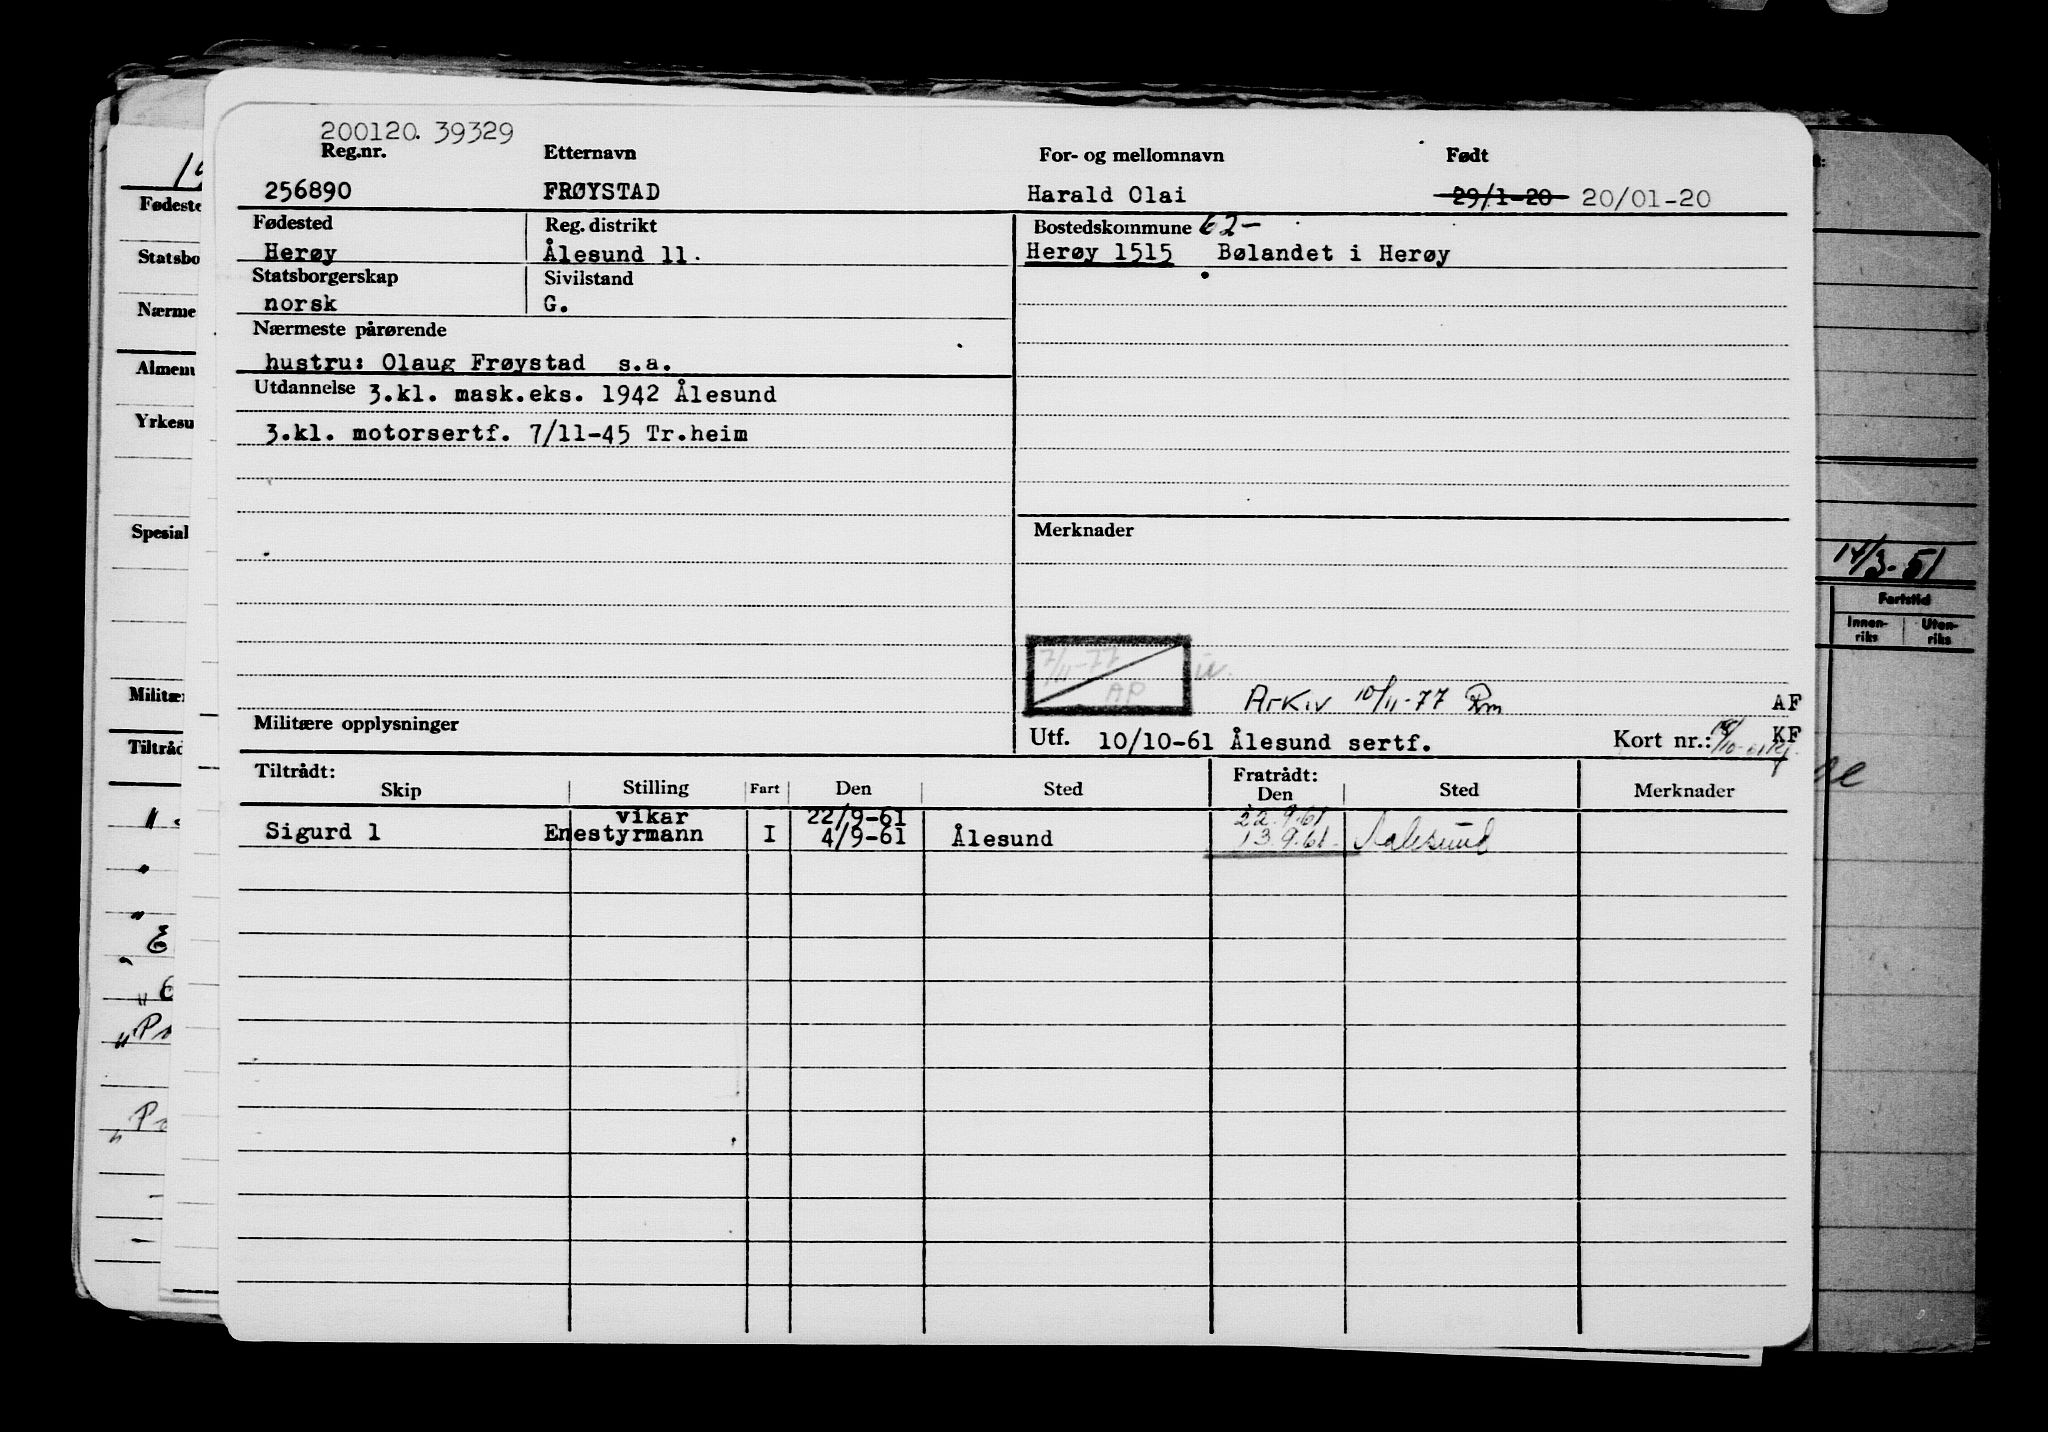 200120. 39329
Reg.nr. Etternavn For- og mellomnavn Født
256890 FRØYSTAD Harald Olai 29/1-20 20/01-20
Fødested Reg. distrikt Bostedskommune 62-
Herøy Ålesund 11. Herøy 1515 Bølandet i Herøy
Statsborgerskap Sivilstand
norsk G.
Nærmeste pårørende
hustru: Olaug Frøystad s.a.
Utdannelse 3.kl. mask.eks. 1942 Ålesund
3.kl. motorsertf. 7/11-45 Tr.heim
Merknader
7/11-77
AP
Arkiv 10/11-77 Rm AF
Militære opplysninger
Utf. 10/10-61 Ålesund sertf. Kort nr.: KF
Tiltrådt: Fratrådt:
Skip Stilling Fart Den Sted Den Sted Merknader
vikar 22/9-61 22.9.61
Sigurd 1 Enestyrmann I 4/9-61 Ålesund 13.9.61 Aalesund
Fødeste
Statsbo
Nærme
Almenu
Yrkesu
Spesial
Militær
Tiltråd
14/3-51
Fartstid
Innen-riks Uten-riks